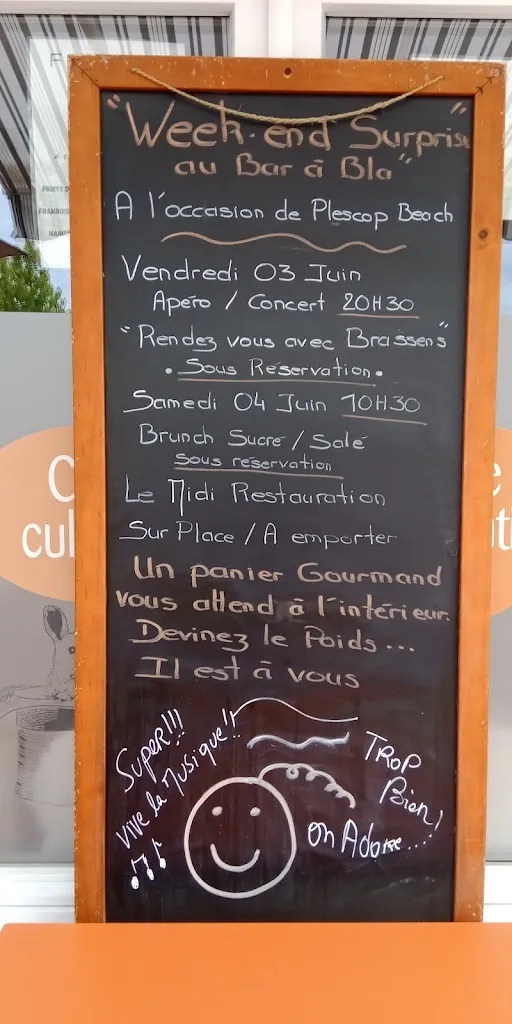 "Week-end Surprise
au Bar à Bla"
A l'occasion de Plescop Beach
Vendredi 03 Juin
Apéro / Concert 20H30
"Rendez vous avec Brassens"
• Sous Réservation •
Samedi 04 Juin 10H30
Brunch Sucré / Salé
Sous réservation
Le Midi Restauration
Sur Place / A emporter
Un panier Gourmand
vous attend à l'intérieur.
Devinez le Poids...
Il est à vous
Super!!!
Vive la Musique!!
TROP
Bien!
on Adore....
C
cul
e
ti
FRUITS D
FRAMBOIS